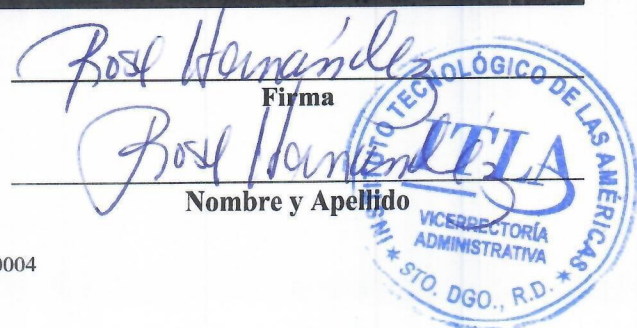 Rose Hernández
Firma
Rose Hernández
Nombre y Apellido
INSTITUTO TECNOLÓGICO DE LAS AMÉRICAS
ITLA
VICERRECTORÍA
ADMINISTRATIVA
* STO. DGO., R.D. *
0004